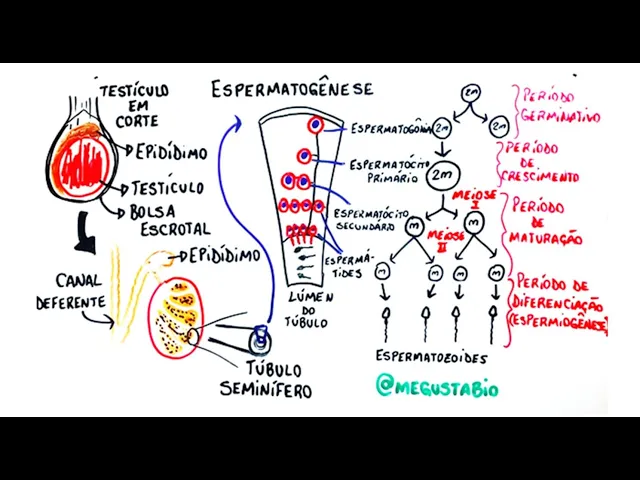 TESTÍCULO
EM
CORTE
EPIDÍDIMO
TESTÍCULO
BOLSA
ESCROTAL
EPIDÍDIMO
CANAL
DEFERENTE
TÚBULO
SEMINÍFERO
ESPERMATOGÊNESE
ESPERMATOGÔNIA
ESPERMATÓCITO
PRIMÁRIO
ESPERMATÓCITO
SECUNDÁRIO
ESPERMÁ-
TIDES
LÚMEN
DO
TÚBULO
2m
2m
2m
2m
MEIOSE
I
m
m
MEIOSE
II
m
m
m
m
ESPERMATOZOIDES
PERÍODO
GERMINATIVO
PERÍODO
DE
CRESCIMENTO
PERÍODO
DE
MATURAÇÃO
PERÍODO DE
DIFERENCIAÇÃO
(ESPERMIOGÊNESE)
@MEGUSTABIO